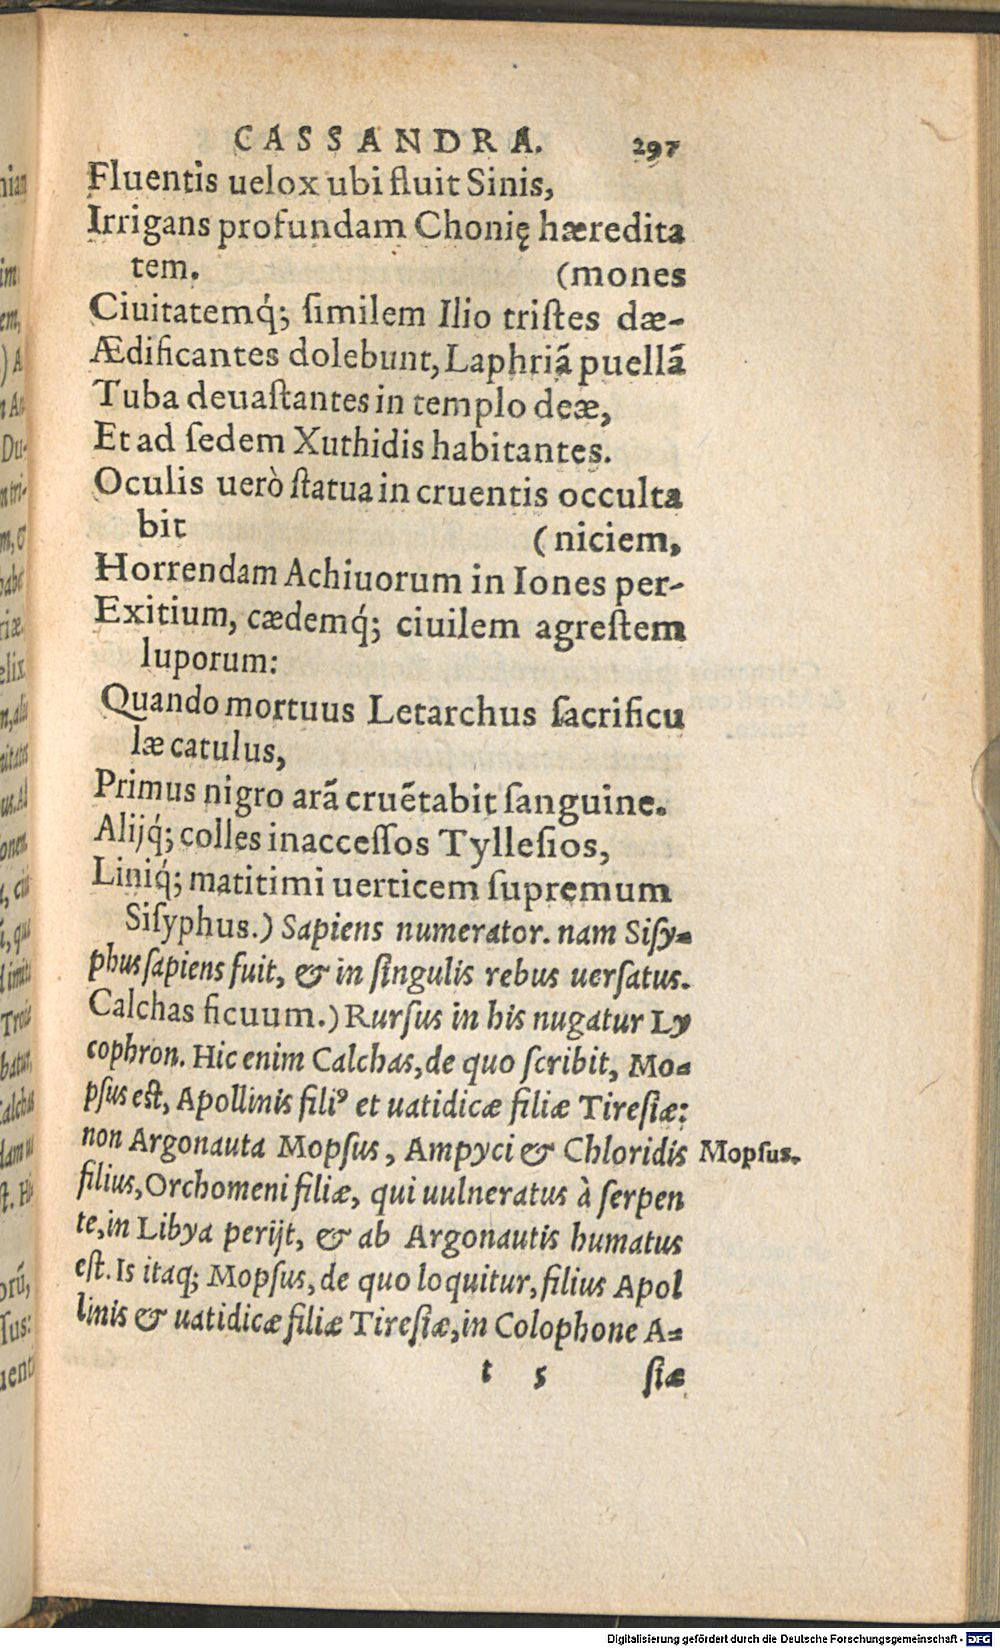 CASSANDRA. 297
Fluentis uelox ubi fluit Sinis,
Irrigans profundam Chonię hæredita
tem. (mones
Ciuitatemq́; ſimilem Ilio triſtes dæ-
Ædificantes dolebunt, Laphriã puellã
Tuba deuaſtantes in templo deæ,
Et ad ſedem Xuthidis habitantes.
Oculis uerò ſtatua in cruentis occulta
bit (niciem,
Horrendam Achiuorum in Iones per-
Exitium, cædemq́; ciuilem agreſtem
luporum:
Quando mortuus Letarchus ſacrificu
læ catulus,
Primus nigro arã cruẽtabit ſanguine.
Alijq́; colles inacceſſos Tylleſios,
Liniq́; matitimi uerticem ſupremum
Siſyphus.) Sapiens numerator. nam Siſy-
phus ſapiens fuit, & in ſingulis rebus uerſatus.
Calchas ficuum.) Rurſus in his nugatur Ly
cophron. Hic enim Calchas, de quo ſcribit, Mo-
pſus est, Apollinis filiꝰ et uatidicæ filiæ Tireſiæ:
non Argonauta Mopſus, Ampyci & Chloridis Mopſus.
filius, Orchomeni filiæ, qui uulneratus à ſerpen
te, in Libya perijt, & ab Argonautis humatus
est. Is itaq; Mopſus, de quo loquitur, filius Apol
linis & uatidicæ filiæ Tireſiæ, in Colophone A-
t 5 ſiæ
Digitalisierung gefördert durch die Deutsche Forschungsgemeinschaft - DFG